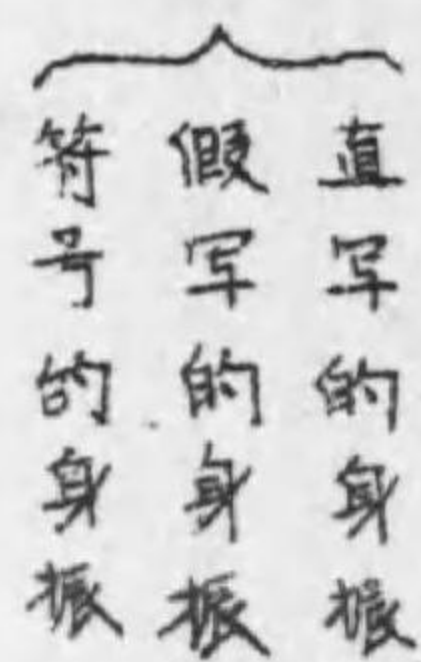 直写的身振
假写的身振
符号的身振